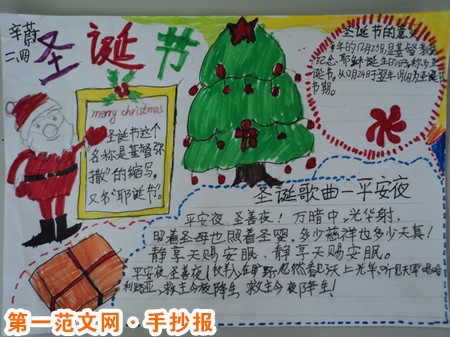 辛蔚
二、四
圣诞节
merry christmas
圣诞节这个
名称是基督弥
撒"的缩写。
又名"耶诞节"。
圣诞节的意义
年的12月25日,是基督教
纪念耶稣诞生的日
诞节,从12月24日
节期。
圣诞歌曲一平安夜
平安夜,圣善夜!万暗中,光华射,
照着圣母也照着圣婴,多少慈祥也多少天真!
静享天赐安眠,静享天赐安眠。
平安夜,圣善夜!牧羊人,在旷野,忽然看见天上光华,听见天军唱哈
利路亚,救主今夜降生,救主今夜降生!
第一范文网·手抄报